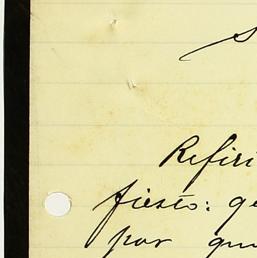 S
Refiri
fiesto: qe
por qu